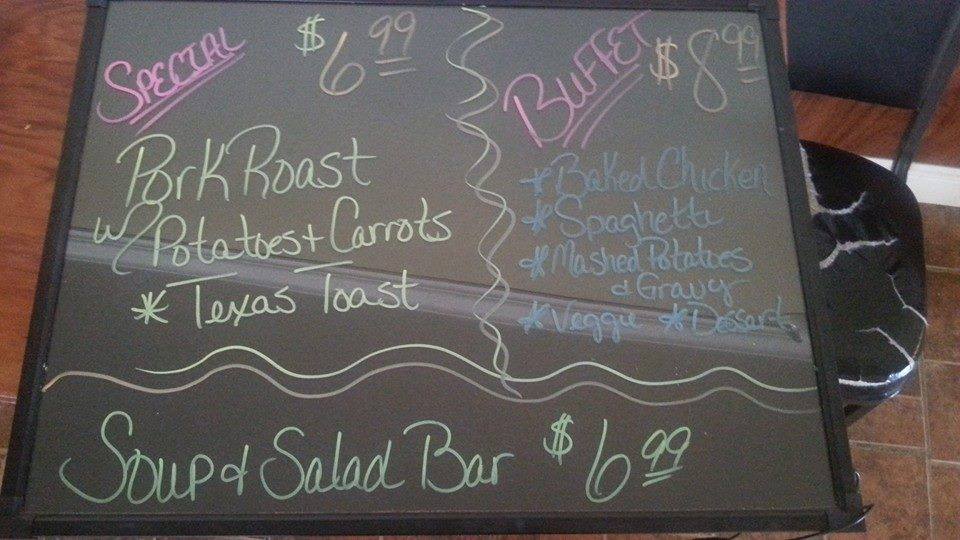 SPECIAL $6.99
Pork Roast
w/ Potatoes + Carrots
* Texas Toast
BUFFET $8.99
* Baked Chicken
* Spaghetti
* Mashed Potatoes
& Gravy
* Veggie * Dessert
Soup & Salad Bar $6.99